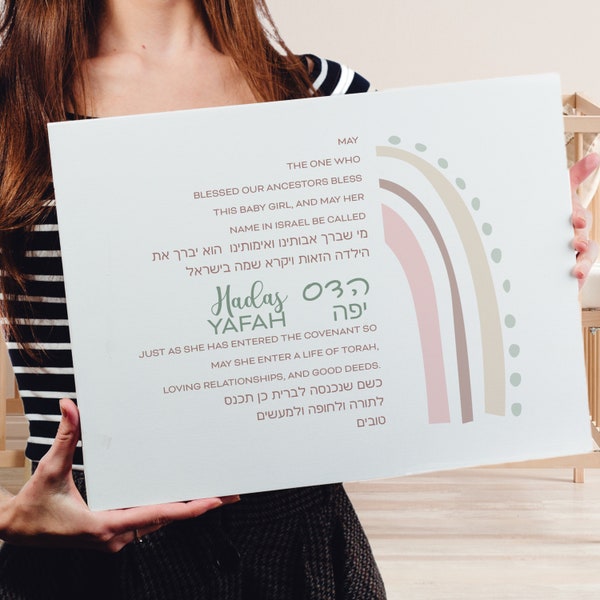 MAY
THE ONE WHO
BLESSED OUR ANCESTORS BLESS
THIS BABY GIRL, AND MAY HER
NAME IN ISRAEL BE CALLED
מי שברך אבותינו ואימותינו הוא יברך את
הילדה הזאות ויקרא שמה בישראל
Hadas הדס
YAFAH יפה
JUST AS SHE HAS ENTERED THE COVENANT SO
MAY SHE ENTER A LIFE OF TORAH,
LOVING RELATIONSHIPS, AND GOOD DEEDS.
כשם שנכנסה לברית כן תכנס
לתורה ולחופה ולמעשים
טובים